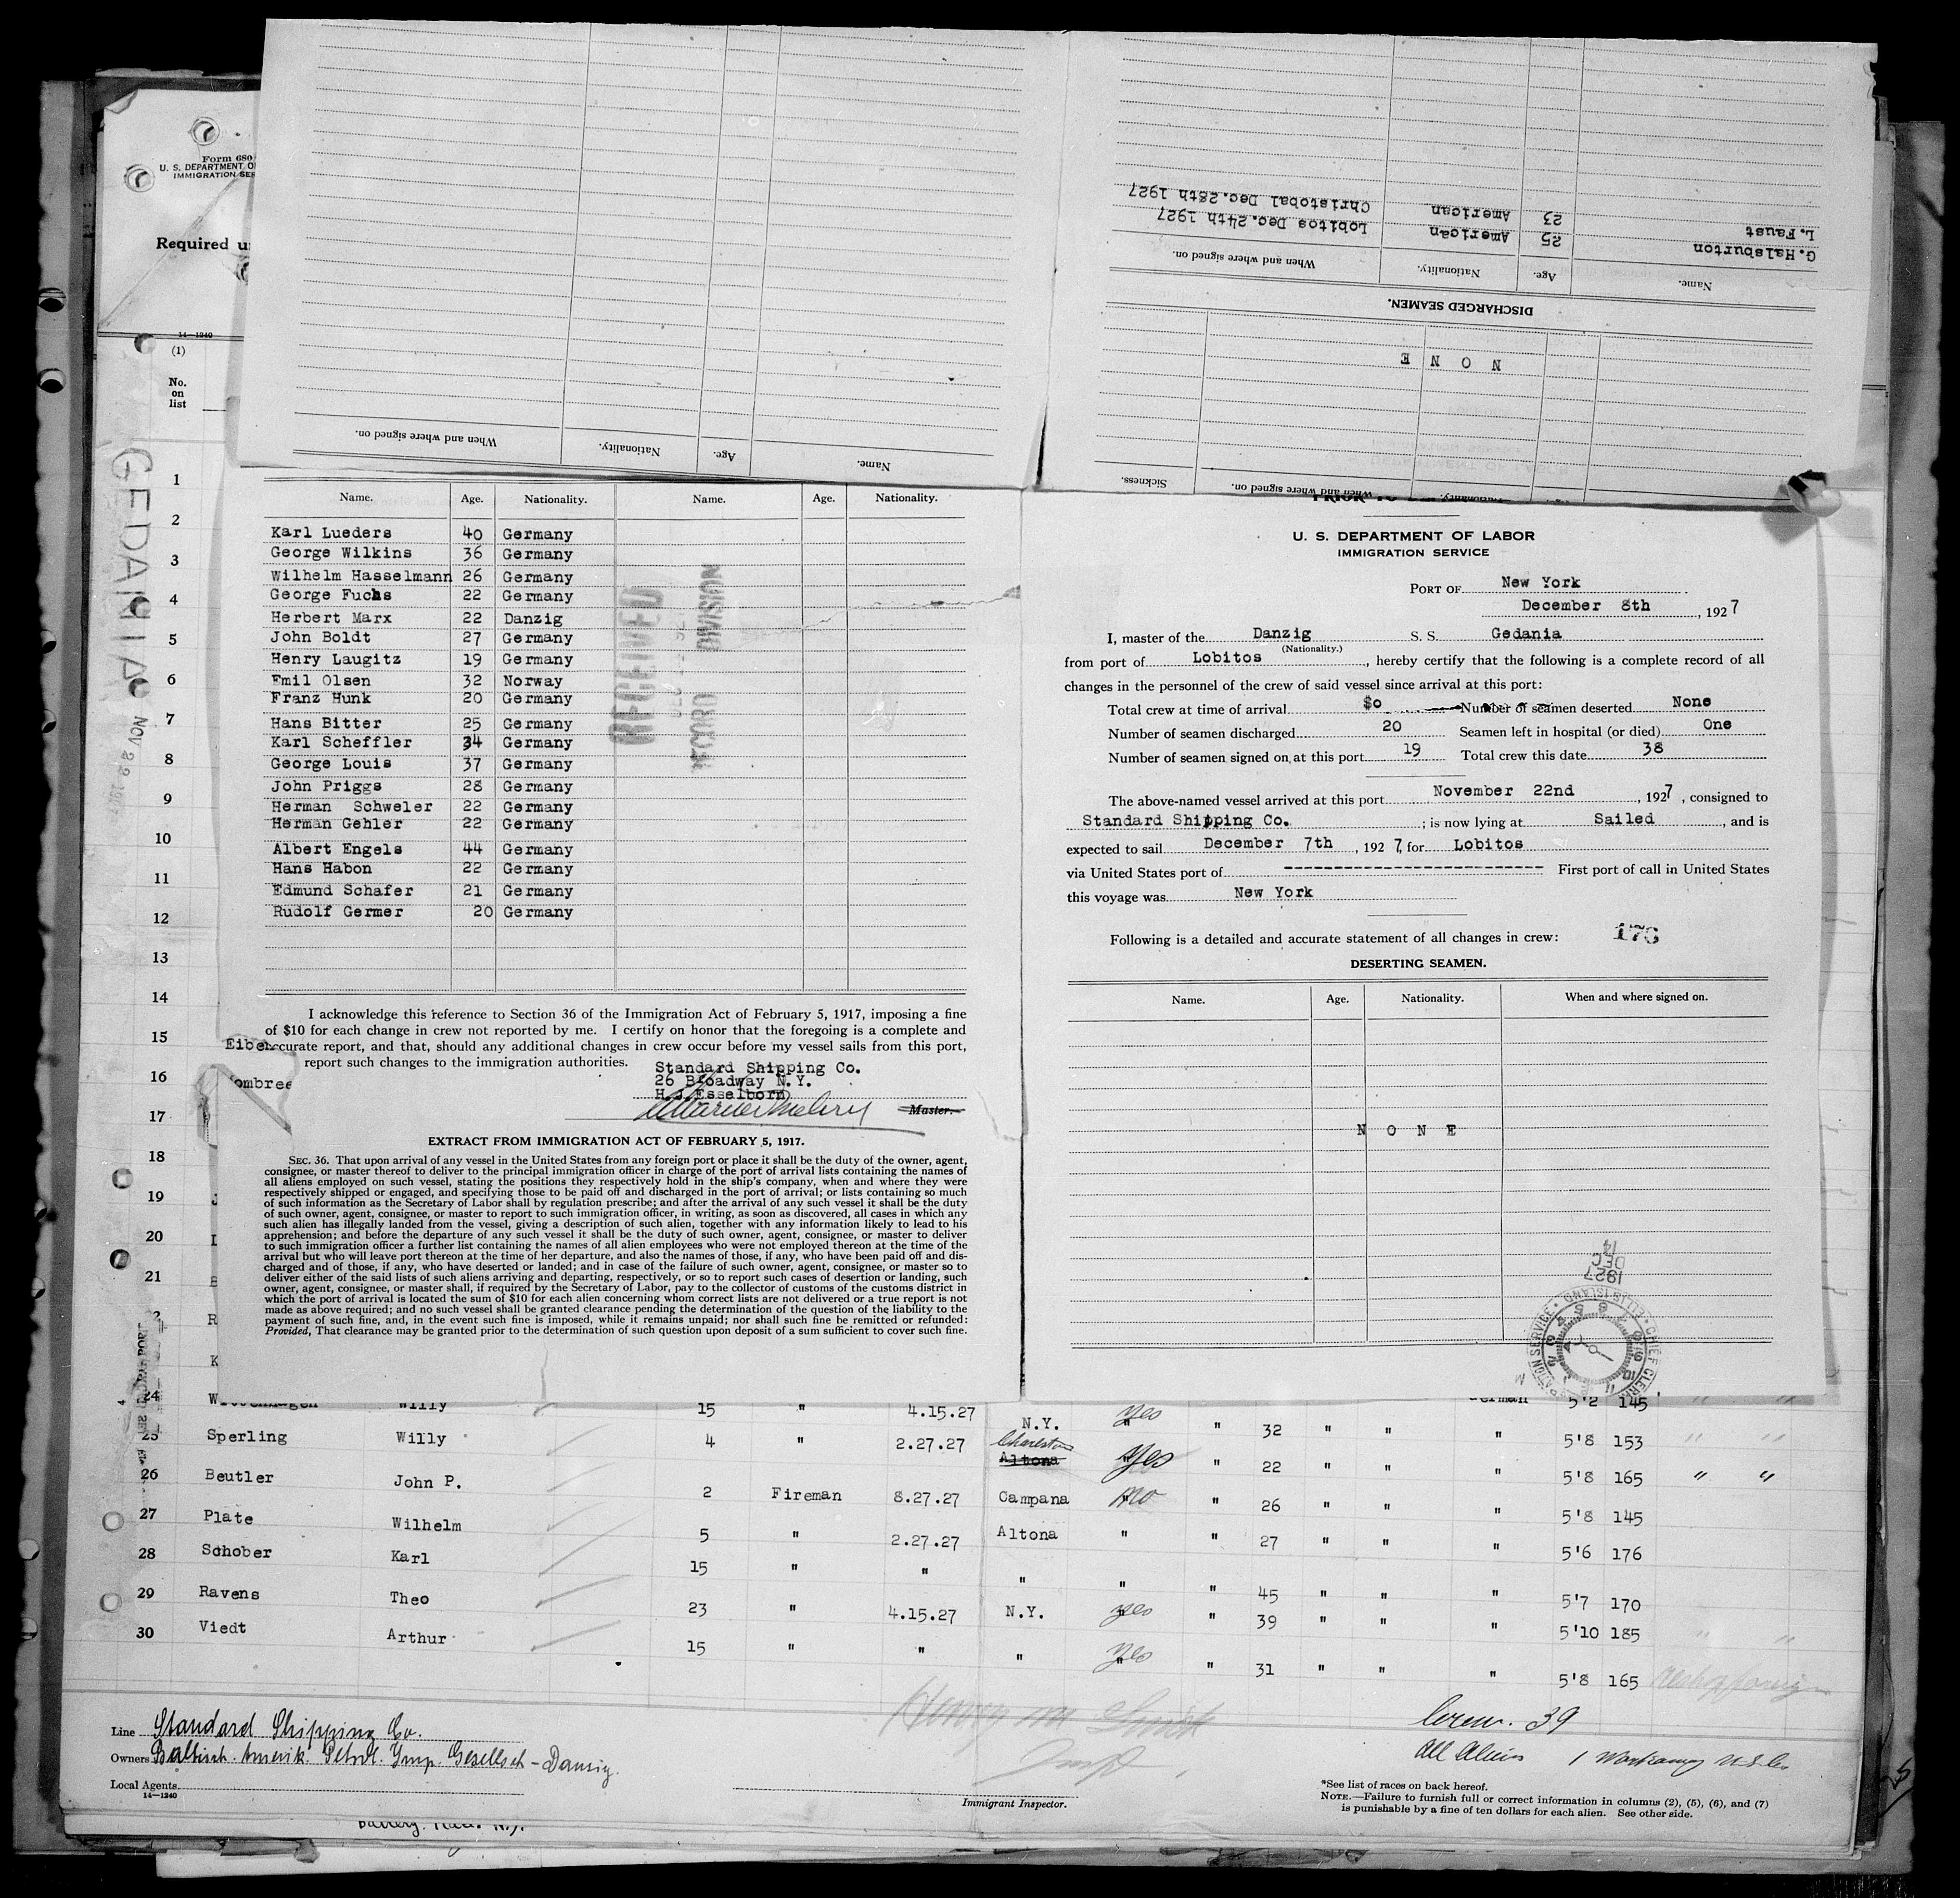 Form 680
U. S. DEPARTMENT O
IMMIGRATION SER
Required u
14—1240
(1)
No.
on
list
GEDANIA
NOV 22 1927
When and where signed on.
Nationality.
Age.
Name.
Christobal Dec.28th 1927
American
23
L. Faust
Lobitos Dec.24th 1927
American
25
G.Halsburton
When and where signed on.
Nationality.
Age.
Name.
DISCHARGED SEAMEN.
N O N E
Sickness.
When and where signed on.
Nationality.
Name. Age. Nationality. Name. Age. Nationality.
Karl Lueders 40 Germany
George Wilkins 36 Germany
Wilhelm Hasselmann 26 Germany
George Fuchs 22 Germany
Herbert Marx 22 Danzig
John Boldt 27 Germany
Henry Laugitz 19 Germany
Emil Olsen 32 Norway
Franz Hunk 20 Germany
Hans Bitter 25 Germany
Karl Scheffler 34 Germany
George Louis 37 Germany
John Priggs 28 Germany
Herman Schweler 22 Germany
Herman Gehler 22 Germany
Albert Engels 44 Germany
Hans Habon 22 Germany
Edmund Schafer 21 Germany
Rudolf Germer 20 Germany
RECEIVED
RECORD DIVISION
I acknowledge this reference to Section 36 of the Immigration Act of February 5, 1917, imposing a fine
of $10 for each change in crew not reported by me. I certify on honor that the foregoing is a complete and
Eibe ccurate report, and that, should any additional changes in crew occur before my vessel sails from this port,
report such changes to the immigration authorities.
ombree
Standard Shipping Co.
26 Broadway N.Y.
H.J.Esselborn
Master.
EXTRACT FROM IMMIGRATION ACT OF FEBRUARY 5, 1917.
SEC. 36. That upon arrival of any vessel in the United States from any foreign port or place it shall be the duty of the owner, agent,
consignee, or master thereof to deliver to the principal immigration officer in charge of the port of arrival lists containing the names of
all aliens employed on such vessel, stating the positions they respectively hold in the ship's company, when and where they were
respectively shipped or engaged, and specifying those to be paid off and discharged in the port of arrival; or lists containing so much
of such information as the Secretary of Labor shall by regulation prescribe; and after the arrival of any such vessel it shall be the duty
of such owner, agent, consignee, or master to report to such immigration officer, in writing, as soon as discovered, all cases in which any
such alien has illegally landed from the vessel, giving a description of such alien, together with any information likely to lead to his
apprehension; and before the departure of any such vessel it shall be the duty of such owner, agent, consignee, or master to deliver
to such immigration officer a further list containing the names of all alien employees who were not employed thereon at the time of the
arrival but who will leave port thereon at the time of her departure, and also the names of those, if any, who have been paid off and dis-
charged and of those, if any, who have deserted or landed; and in case of the failure of such owner, agent, consignee, or master so to
deliver either of the said lists of such aliens arriving and departing, respectively, or so to report such cases of desertion or landing, such
owner, agent, consignee, or master shall, if required by the Secretary of Labor, pay to the collector of customs of the customs district in
which the port of arrival is located the sum of $10 for each alien concerning whom correct lists are not delivered or a true report is not
made as above required; and no such vessel shall be granted clearance pending the determination of the question of the liability to the
payment of such fine, and, in the event such fine is imposed, while it remains unpaid; nor shall such fine be remitted or refunded:
Provided, That clearance may be granted prior to the determination of such question upon deposit of a sum sufficient to cover such fine.
U. S. DEPARTMENT OF LABOR
IMMIGRATION SERVICE
PORT OF New York
December 8th, 1927
I, master of the Danzig S. S. Gedania
(Nationality.)
from port of Lobitos, hereby certify that the following is a complete record of all
changes in the personnel of the crew of said vessel since arrival at this port:
Total crew at time of arrival $0 Number of seamen deserted None
Number of seamen discharged 20 Seamen left in hospital (or died) One
Number of seamen signed on at this port 19 Total crew this date 38
The above-named vessel arrived at this port November 22nd, 1927, consigned to
Standard Shipping Co.; is now lying at Sailed, and is
expected to sail December 7th, 1927, for Lobitos
via United States port of ---------------------------- First port of call in United States
this voyage was New York
Following is a detailed and accurate statement of all changes in crew: 176
DESERTING SEAMEN.
Name. Age. Nationality. When and where signed on.
N O N E
1927
DEC
14
IMMIGRATION SERVICE • ELLIS ISLAND • CHIEF CLERK
1
2
3
4
5
6
7
8
9
10
11
12
13
14
15
16
17
18
19
20
21
24 Willy 15 " 4.15.27 N.Y. yes " 32 " " German 5'2 145
25 Sperling Willy 4 " 2.27.27 Charleston Altona yes " 22 " " " 5'8 153
26 Beutler John P. 2 Fireman 8.27.27 Campana no " 26 " " " 5'8 165 " "
27 Plate Wilhelm 5 " 2.27.27 Altona " " 27 " " " 5'8 145
28 Schober Karl 15 " " " " " 45 " " " 5'6 176
29 Ravens Theo 23 " 4.15.27 N.Y. yes " 39 " " " 5'7 170
30 Viedt Arthur 15 " " " yes " 31 " " " 5'10 185
5'8 165
Line Standard Shipping Co.
Owners Baltisch. Amerik. Petrol. Imp. Gesellsch - Danzig.
Local Agents
14—1240
Immigrant Inspector.
Crew. 39
All Aliens 1 Workaway
*See list of races on back hereof.
NOTE.—Failure to furnish full or correct information in columns (2), (5), (6), and (7)
is punishable by a fine of ten dollars for each alien. See other side.